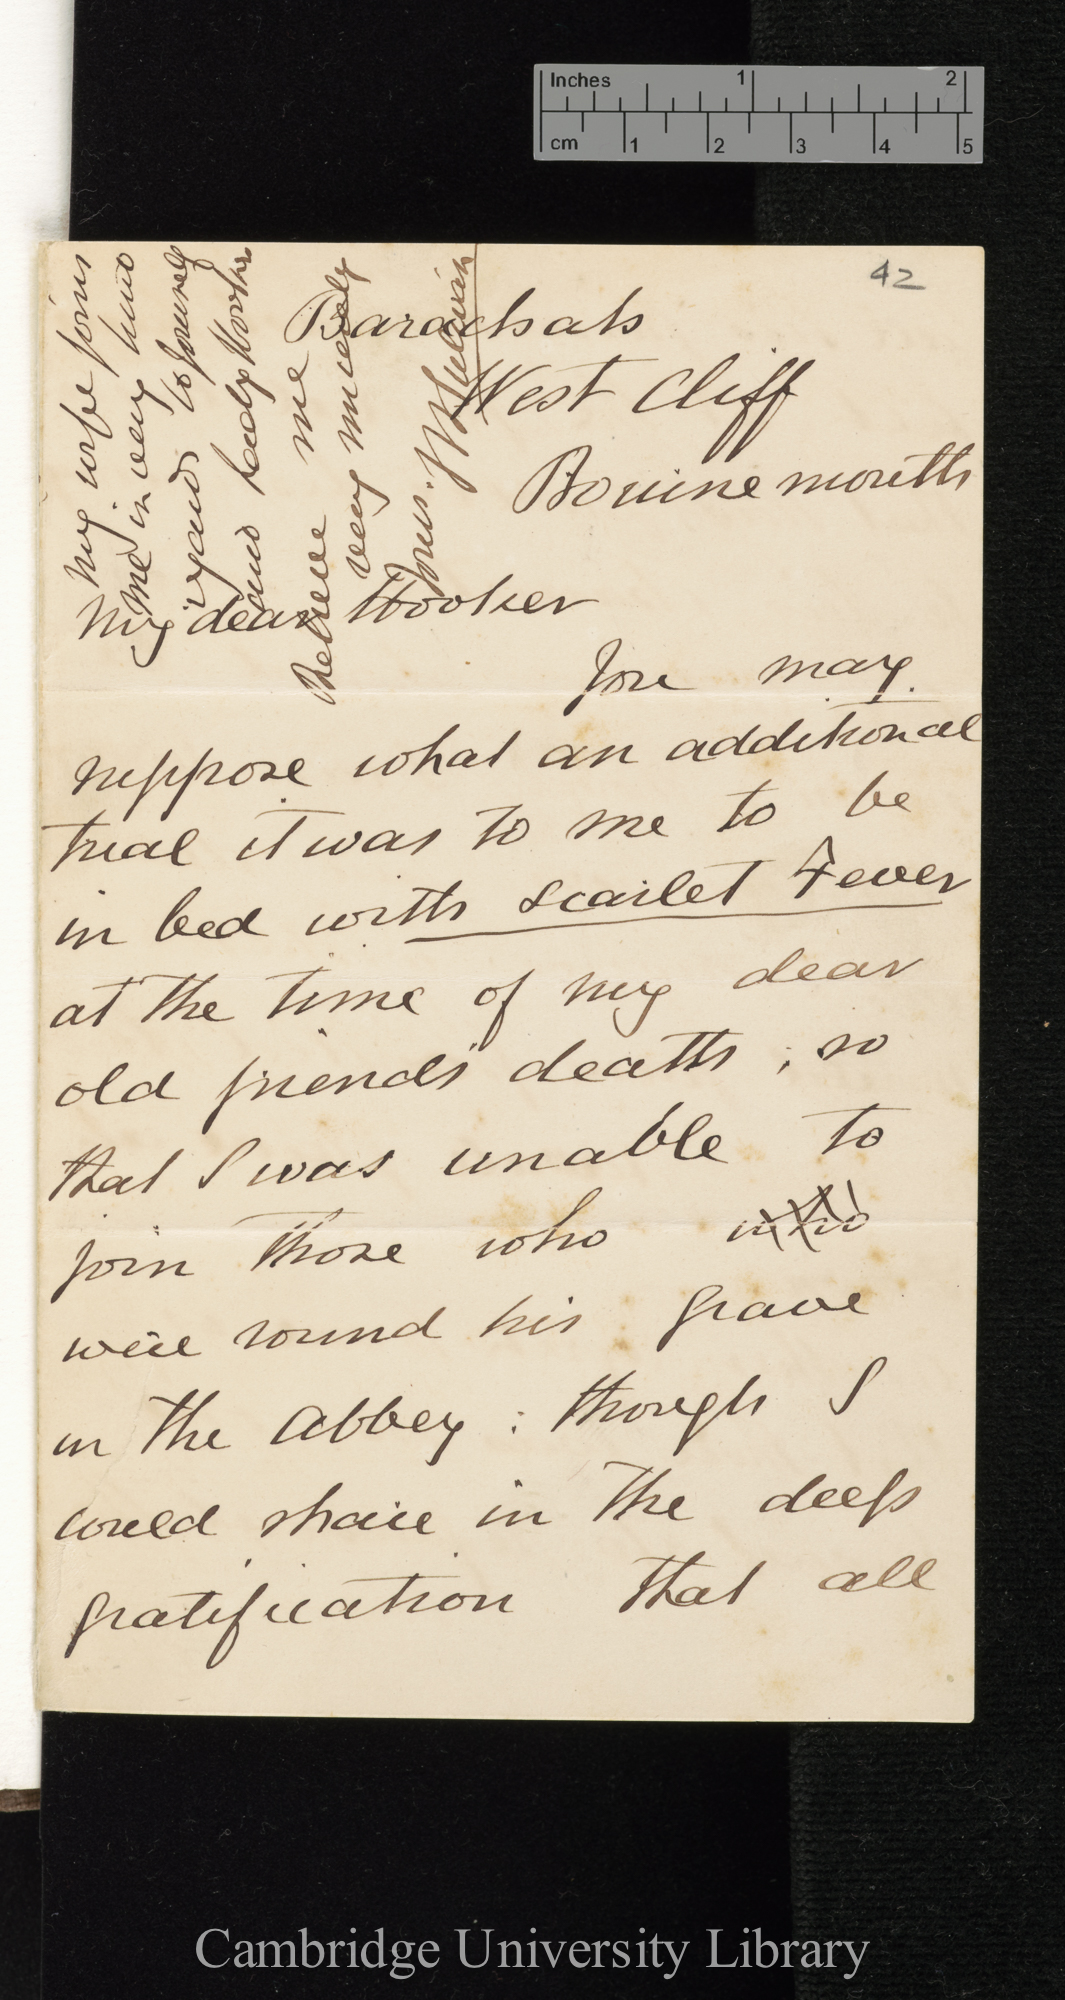 Inches 1 2
cm 1 2 3 4 5
42
West Cliff
Bournemouth
My dear Hooker
You may
suppose what an additional
trial it was to me to be
in bed with scarlet Fever
at the time of my dear
old friend's death; so
that I was unable to
join those who who
were round his grave
in the Abbey: though I
could share in the deep
gratification that all
My wife joins
me in very kind
regards to yourself
and Lady Hooker
Believe me
very sincerely
yours.
Cambridge University Library